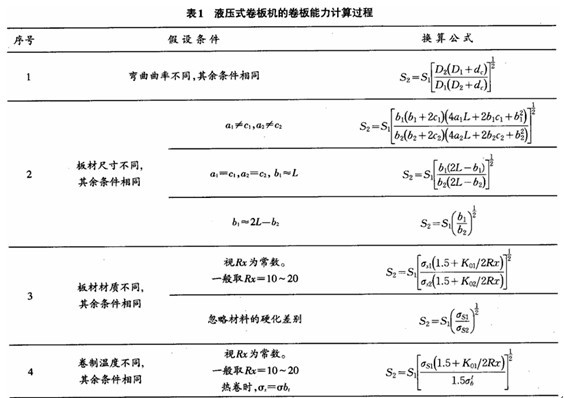 表1 液压式卷板机的卷板能力计算过程
序号 假设条件 换算公式
1 弯曲曲率不同,其余条件相同 S₂=S₁[D₂(D₁+d_c)/D₁(D₂+d_c)]^½
2 板材尺寸不同,其余条件相同
a₁≠c₁,a₂≠c₂ S₂=S₁[b₁(b₁+2c₁)(4a₁L+2b₁c₁+b₁²)/b₂(b₂+2c₂)(4a₂L+2b₂c₂+b₂²)]^½
a₁=c₁,a₂=c₂, b₁≈L S₂=S₁[b₁(2L-b₁)/b₂(2L-b₂)]^½
b₁≈2L-b₂ S₂=S₁(b₁/b₂)^½
3 板材材质不同,其余条件相同
视Rx为常数。
一般取Rx=10~20 S₂=S₁[σ_s1(1.5+K₀₁/2Rx)/σ_s2(1.5+K₀₂/2Rx)]^½
忽略材料的硬化差别 S₂=S₁(σ_S1/σ_S2)^½
4 卷制温度不同,其余条件相同
视Rx为常数。
一般取Rx=10~20
热卷时,σ_s=σb_t S₂=S₁[σ_S1(1.5+K₀₁/2Rx)/1.5σ_b^t]^½